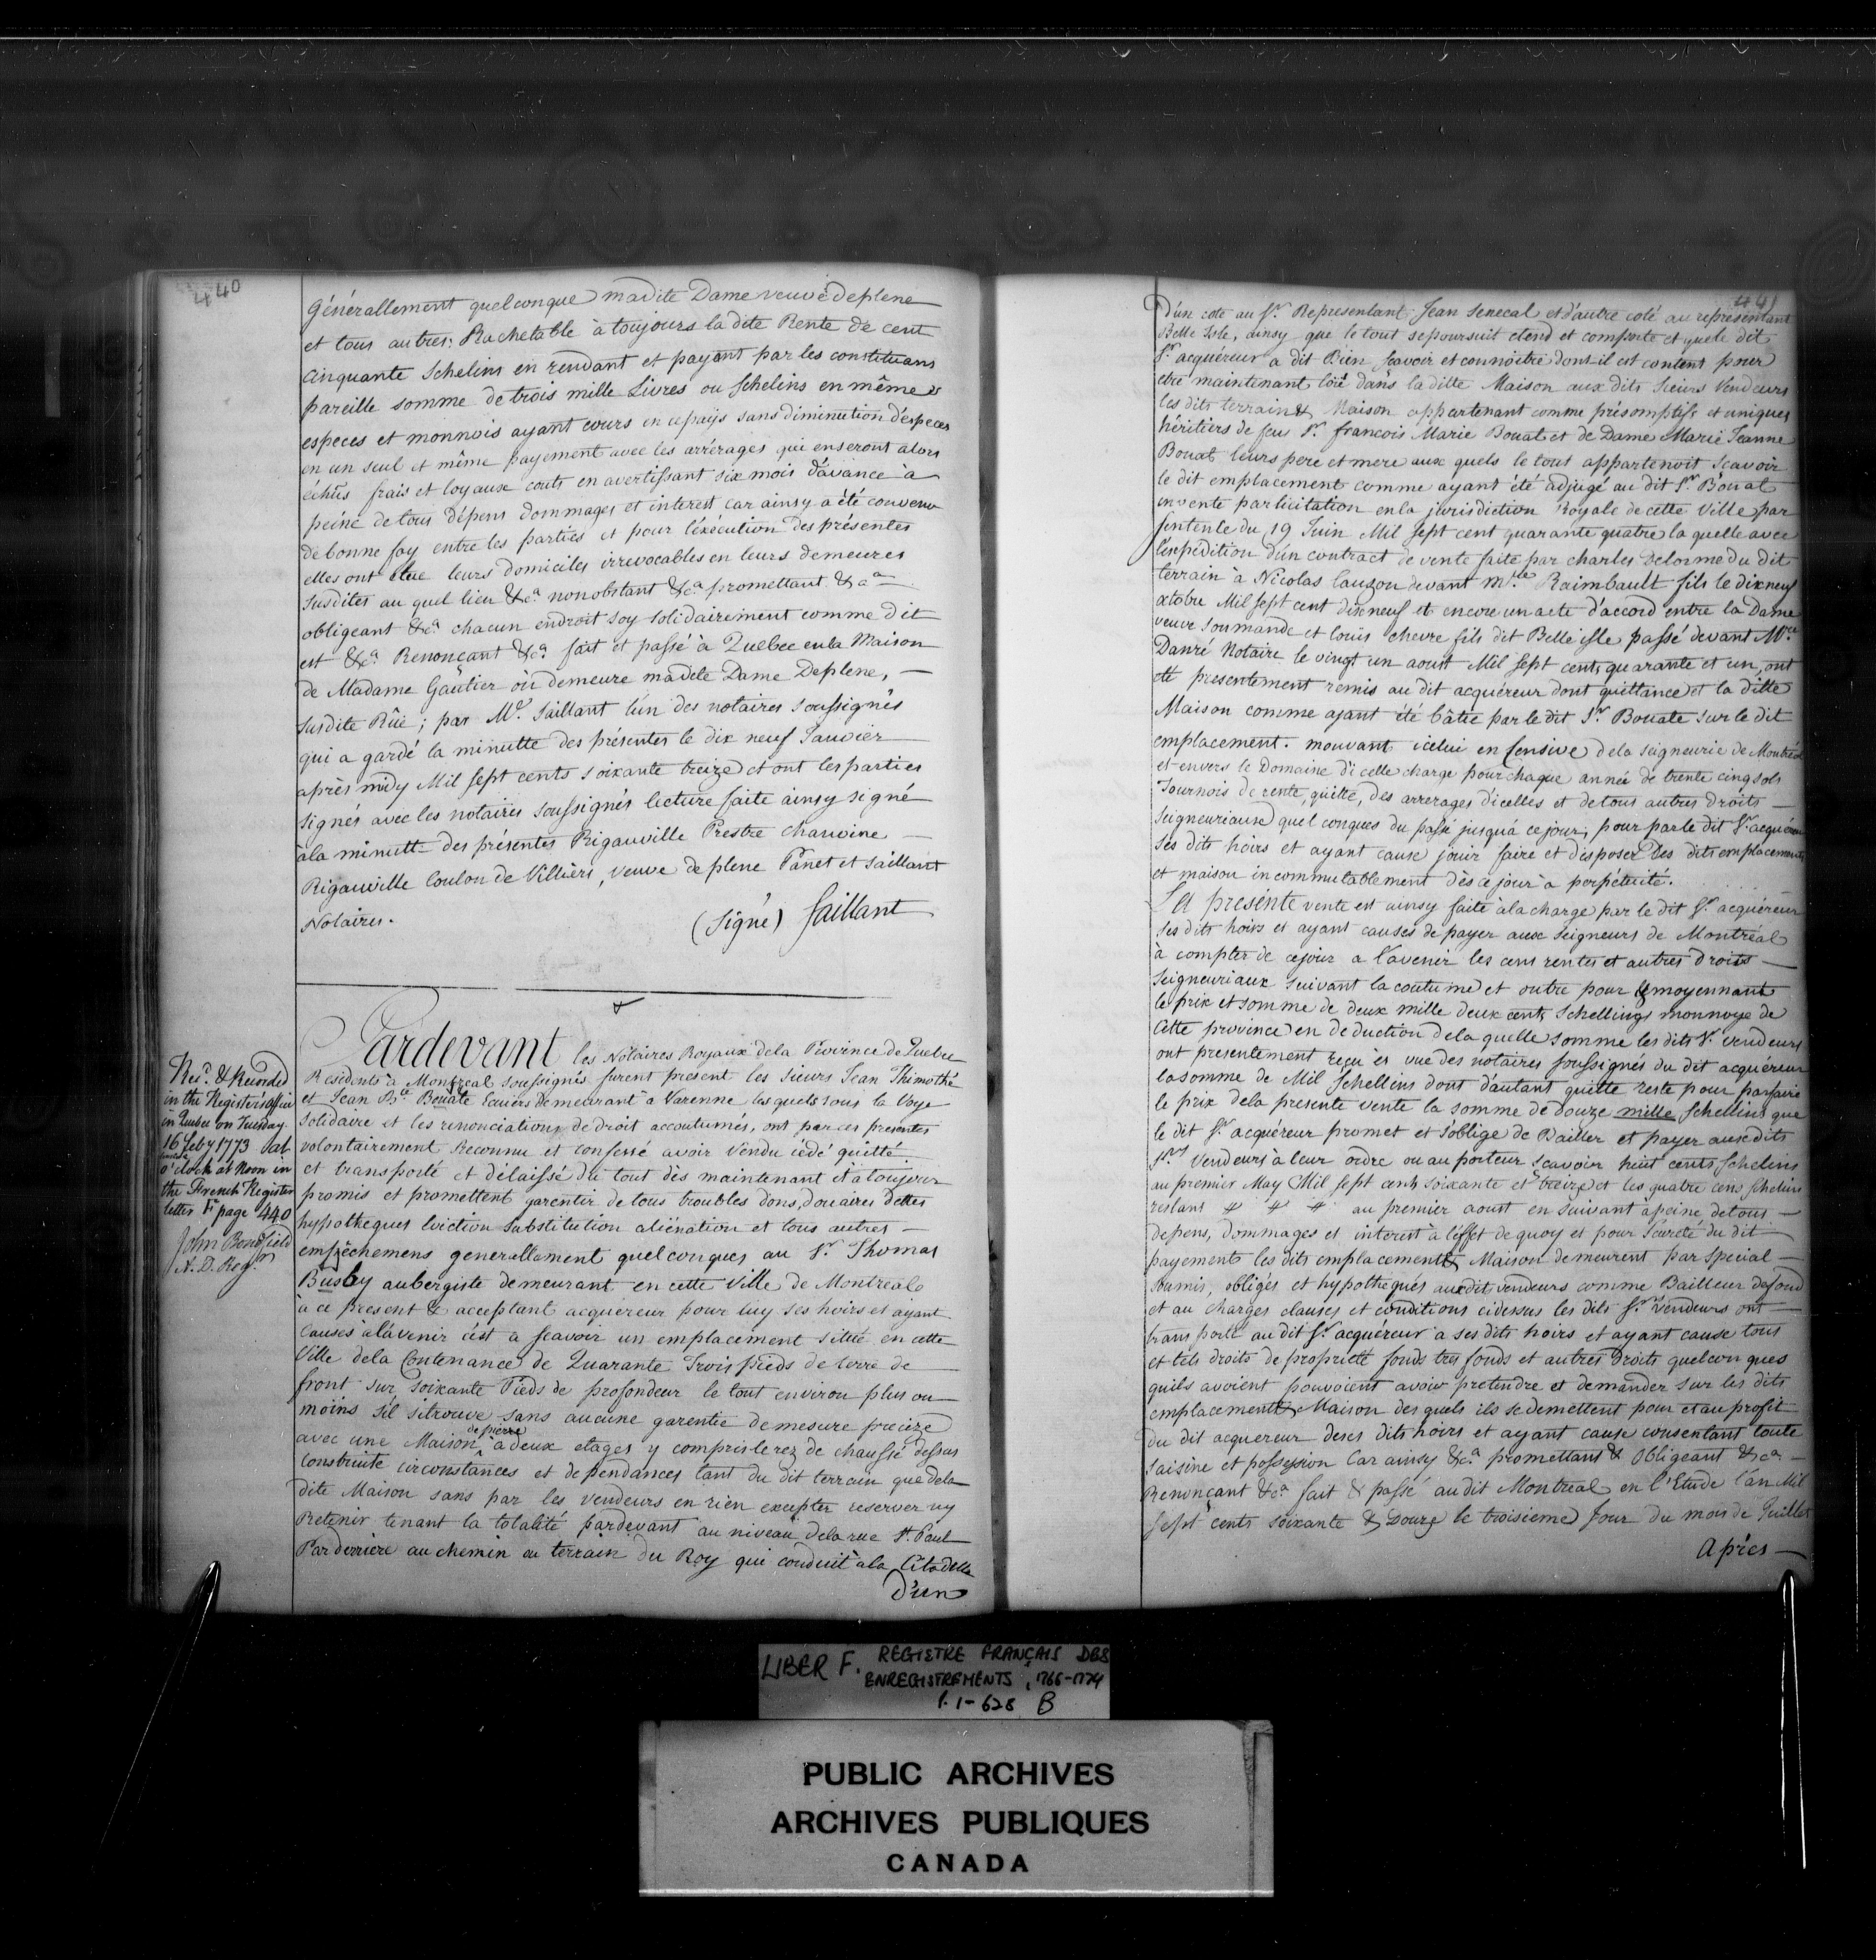 440
Générallement quelconque madite Dame veuve deplene
et tous autres: Rachetable à toujours la dite Rente de cent
Cinquante Schelins en rendant et payant par les constituans
pareille somme de trois mille Livres ou schelins en même
especes et monnois ayant cours en ce païs sans diminution d'especes
en un seul et même payement avec les arrérages qui en seront alors
échûs frais et loyaux couts en avertissant six mois d'avance à
peine de tous dépens dommages et interest car ainsy a été convenu
de bonne foy entre les parties et pour l'éxécution des présentes
elles ont élue leurs domiciles irrevocables en leurs demeures
Susdites au quel lieu &ca nonobstant &ca promettant &ca
obligeant &ca chacun endroit soy solidairement comme dit
est &ca Renonçant &ca fait et passé à Quebec en la Maison
de Madame Gautier où demeure madte Dame Deplene,
Susdite Rûe; par Me. Saillant l'un des notaires soussignés
qui a gardé la minutte des présentes le dix neuf Janvier
après midy Mil sept cents soixante treize et ont les parties
signés avec les notaires soussignés lecture faite ainsy signé
à la minutte des présentes Rigauville Prestre chanoine
Rigauville Coulon de Villiers, veuve de plene Panet et Saillant
Notaires.
(Signé) Saillant
Recd. & Recorded
in the Register's Office
in Quebec on Tuesday
16 feby 1773 at
o'clock at Noon in
the French Register
letter F page 440
John Bonfield
A. D. Regr.
Pardevant les Notaires Royaux de la Province de Quebec
Residents à Montreal soussignés furent present les sieurs Jean Thimothé
et Jean Bte Bouate Ecuiers Demeurant à Varenne lesquels sous la Voye
Solidaire et les renonciations de droit accoutumés, ont par ces presentes
volontairement Reconnu et confessé avoir Vendu cédé quitté
et transporté et délaissé du tout dès maintenant et à toujours
promis et promettent garentir de tous troubles dons, douaires dettes
hypotheques Eviction Substitution aliénation et tous autres
empêchemens generallement quelconques au Sr Thomas
Busby aubergiste demeurant en cette Ville de Montreal
à ce present & acceptant acquereur pour luy ses hoirs et ayant
Causes à l'avenir c'est a scavoir un emplacement situé en cette
Ville de la Contenance de Quarante Trois pieds de terre de
front sur soixante Pieds de profondeur le tout environ plus ou
moins s'il s'itrouve sans aucune garentie de mesure precize
avec une Maison de pierre à deux etages y compris le rez de chaussé dessus
Construite circonstances et dependances tant du dit terrain que de la
dite Maison sans par les vendeurs en rien excepter reserver ny
Retenir tenant la totalité pardevant au niveau de la rue St. Paul
Par derriere au chemin ou terrain du Roy qui conduit à la Citadelle
D'un
441
D'une coté au Sr. Representant Jean Senecal et d'autre coté au representant
Belle Isle, ainsy que le tout se poursuit etend et comporte et que le dit
Sr. acquéreur a dit Bien scavoir et connoitre dont il est content pour
etre maintenant logé dans la ditte Maison aux dits Sieurs Vendeurs
les dits terrain & Maison appartenant comme présomptifs et uniques
héritiers de feu Sr. francois Marie Bouat et de Dame Marie Jeanne
Bouat leurs pere et mere aux quels le tout appartenoit Scavoir
le dit emplacement comme ayant été adjugé au dit Sr. Bouat
en vente par licitation en la jurisdiction Royale de cette Ville par
sentente du 19 Juin Mil sept cent quarante quatre la quelle avec
l'expedition d'un contract de vente faite par charles Delorme du dit
terrain à Nicolas lauzon devant Mtre Raimbault fils le dixneuf
octobre Mil sept cent dixneuf et encore un acte d'accord entre la Dame
veuve Soumande et Louis chevre fils dit Belle isle passé devant Mtre
Danré Notaire le vingt un aoust Mil sept cents quarante et un, ont
eté presentement remis au dit acquéreur dont quittance et la ditte
Maison comme ayant été bâtie par le dit Sr. Bouate sur le dit
emplacement. mouvant icelui en Censive de la Seigneurie de Montréal
et envers le Domaine d'icelle charge pour chaque année de trente cinq sols
Tournois de rente, quitte, des arrerages d'icelles et de tous autres Droits
Seigneuriaux quelconques du passé jusqu'à ce jour; pour par le dit Sr. acquéreur
Ses dits hoirs et ayant cause jouir faire et disposer Des dits emplacement
et maison incommutablement dès ce jour à perpétuité.
La presente vente est ainsy faite à la charge par le dit Sr. acquéreur
Ses dits hoirs et ayant causes de payer aux seigneurs de Montréal
à compter de ce jour a l'avenir les cens rentes et autres droits
Seigneuriaux suivant la coutume et outre pour & moyennant
le prix et somme de deux mille deux cents Schellings monnoye de
Cette province en deduction de la quelle somme les dits Sr. vendeurs
ont presentement reçu ès vue des notaires soussignés du dit acquéreur
la somme de Mil Schellins dont d'autant quitte reste pour parfaire
le prix de la presente vente la somme de douze mille Schellins que
le dit Sr. acquéreur promet et s'oblige de Bailler et payer aux dits
Srs Vendeurs à leur ordre ou au porteur scavoir huit cents Schelins
au premier May Mil sept cents soixante et treize et les quatre cens Schelins
restans # # # au premier aoust en suivant a peine de tous
depens, dommages et interest à l'effet de quoy et pour Seureté du dit
payement les dits emplacement & Maison demeurent par special
Soumis, obligés et hypothequés aux dit vendeurs comme Bailleur de fond
et au charges clauses et conditions cidessus les dits Sr. Vendeurs ont
transporté au dit Sr. acquéreur a ses dits hoirs et ayant cause tous
et tels droits de proprieté fonds tres fonds et autres Droits quelconques
quils avoient pouvoient avoir pretendre et demander sur les dits
emplacement & Maison desquels ils se demettent pour et au profit
du dit acquereur deses dits hoirs et ayant cause consentant toute
saisine et possession Car ainsy &ca promettant & Obligeant &ca
Renonçant &ca fait & passé au dit Montreal en l'Etude l'an Mil
sept cents soixante & Douze le troisieme Jour du mois de Juillet
Après
LIBER F. REGISTRE FRANÇAIS DES
ENREGISTREMENTS, 1766-1774
P. 1-628 B
PUBLIC ARCHIVES
ARCHIVES PUBLIQUES
CANADA